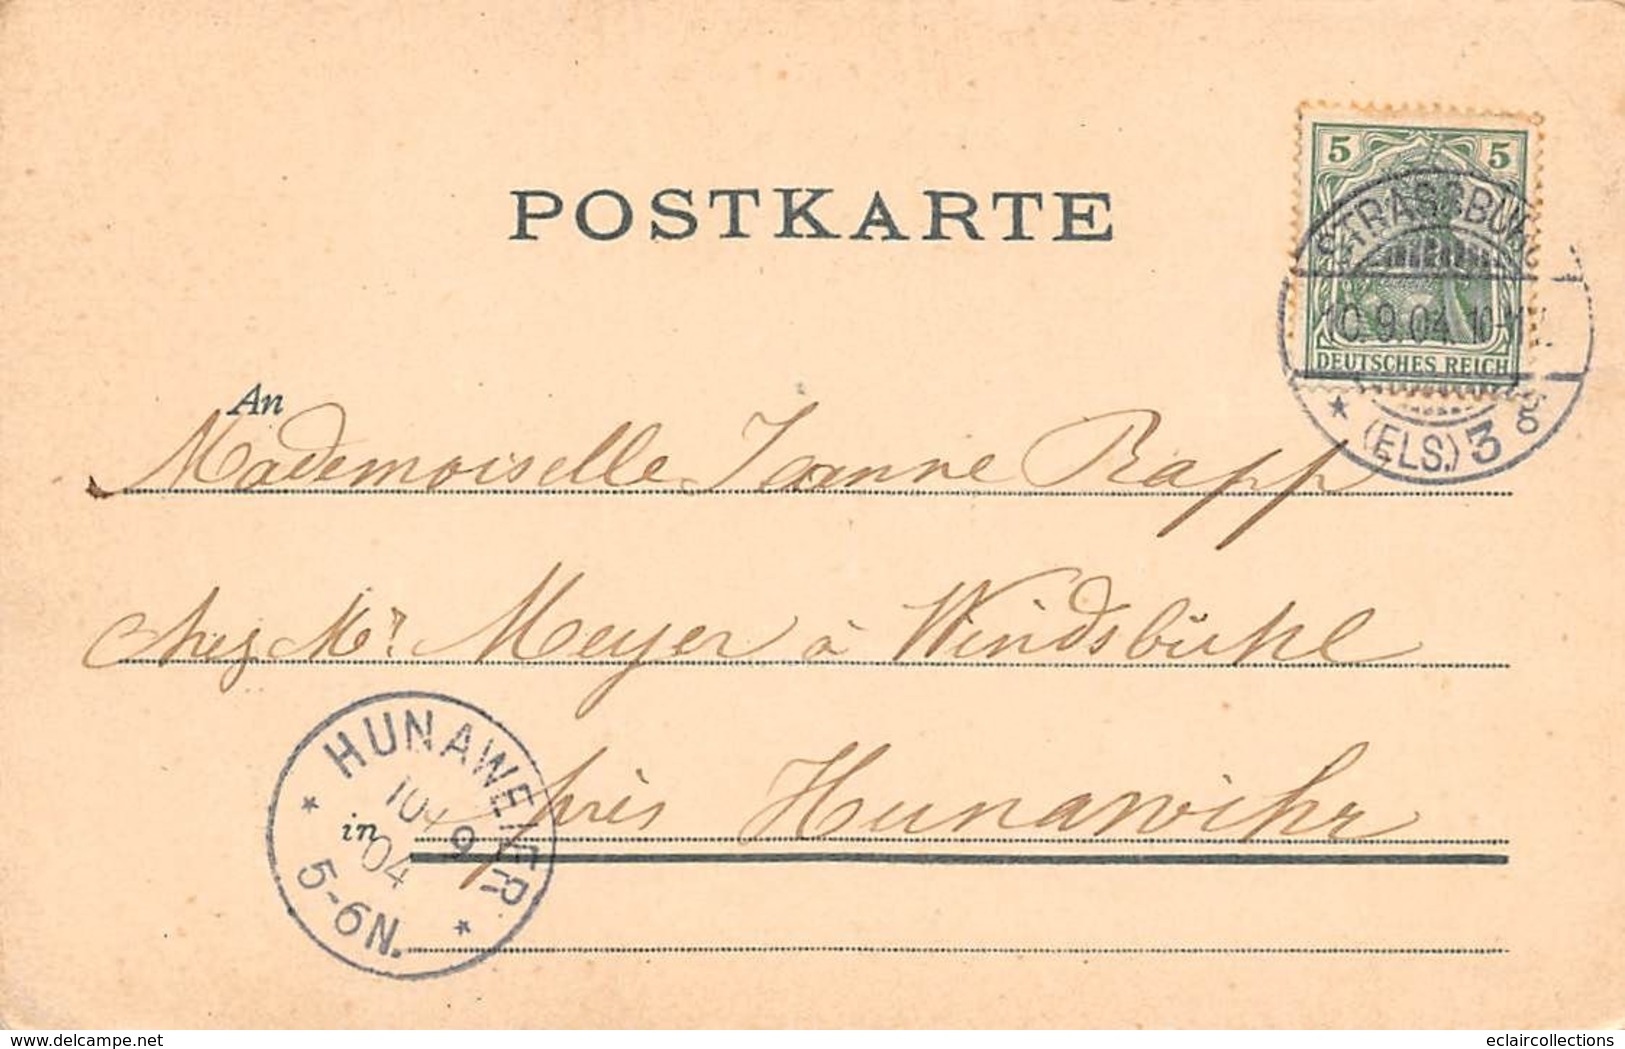 POSTKARTE
5 5
DEUTSCHES REICH
STRASSBURG
10.9.04. 10-11V.
* (ELS.) 3 g
An
Mademoiselle Jeanne Rapp
chez Mr. Meyer à Windsbühl
près Hunawihr
in
HUNAWEIER
10 9
04
5-6N.
delcampe.net
eclaircollections